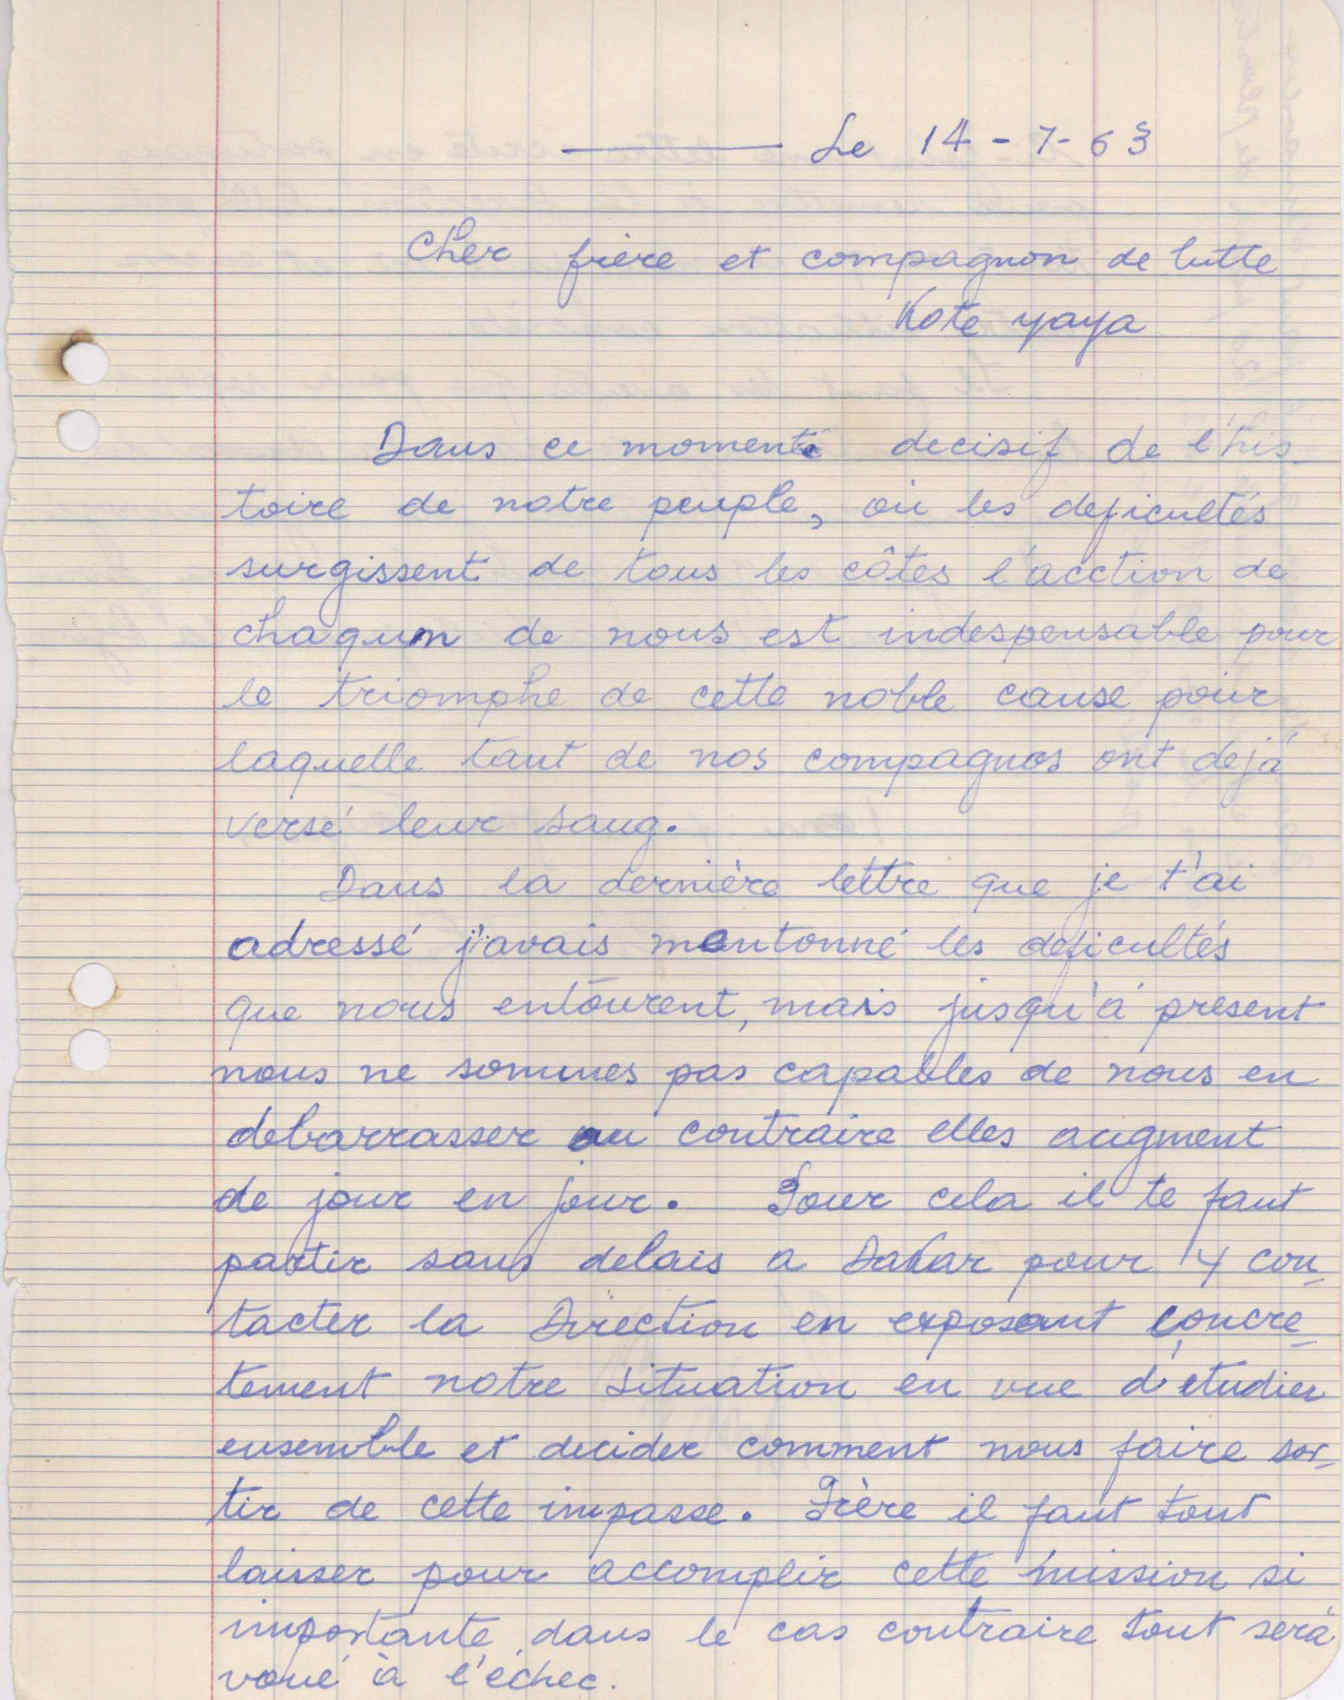 Le 14-7-63
Cher frère et compagnon de lutte
Koté yaya
Dans ce momente decisif de l'his_
toire de notre peuple, où les deficultés
surgissent de tous les côtés l'acction de
chaqum de nous est indespensable pour
le triomphe de cette noble cause pour
laquelle tant de nos compagnos ont dejà
versé leur sang.
Dans la dernière lettre que je t'ai
adressé j'avais mentonné les deficultés
que nous entourent, mais jusqu'à present
nous ne sommes pas capables de nous en
debarrasser au contraire elles augment
de jour en jour. Pour cela il te faut
partir sans delais a Dakar pour y con_
tacter la Direction en exposant concre_
tement notre situation en vue d'etudier
ensemble et decider comment nous faire sor_
tir de cette impasse. Frère il faut tout
laisser pour accomplir cette mission si
importante, dans le cas contraire tout serà
voué à l'échec.